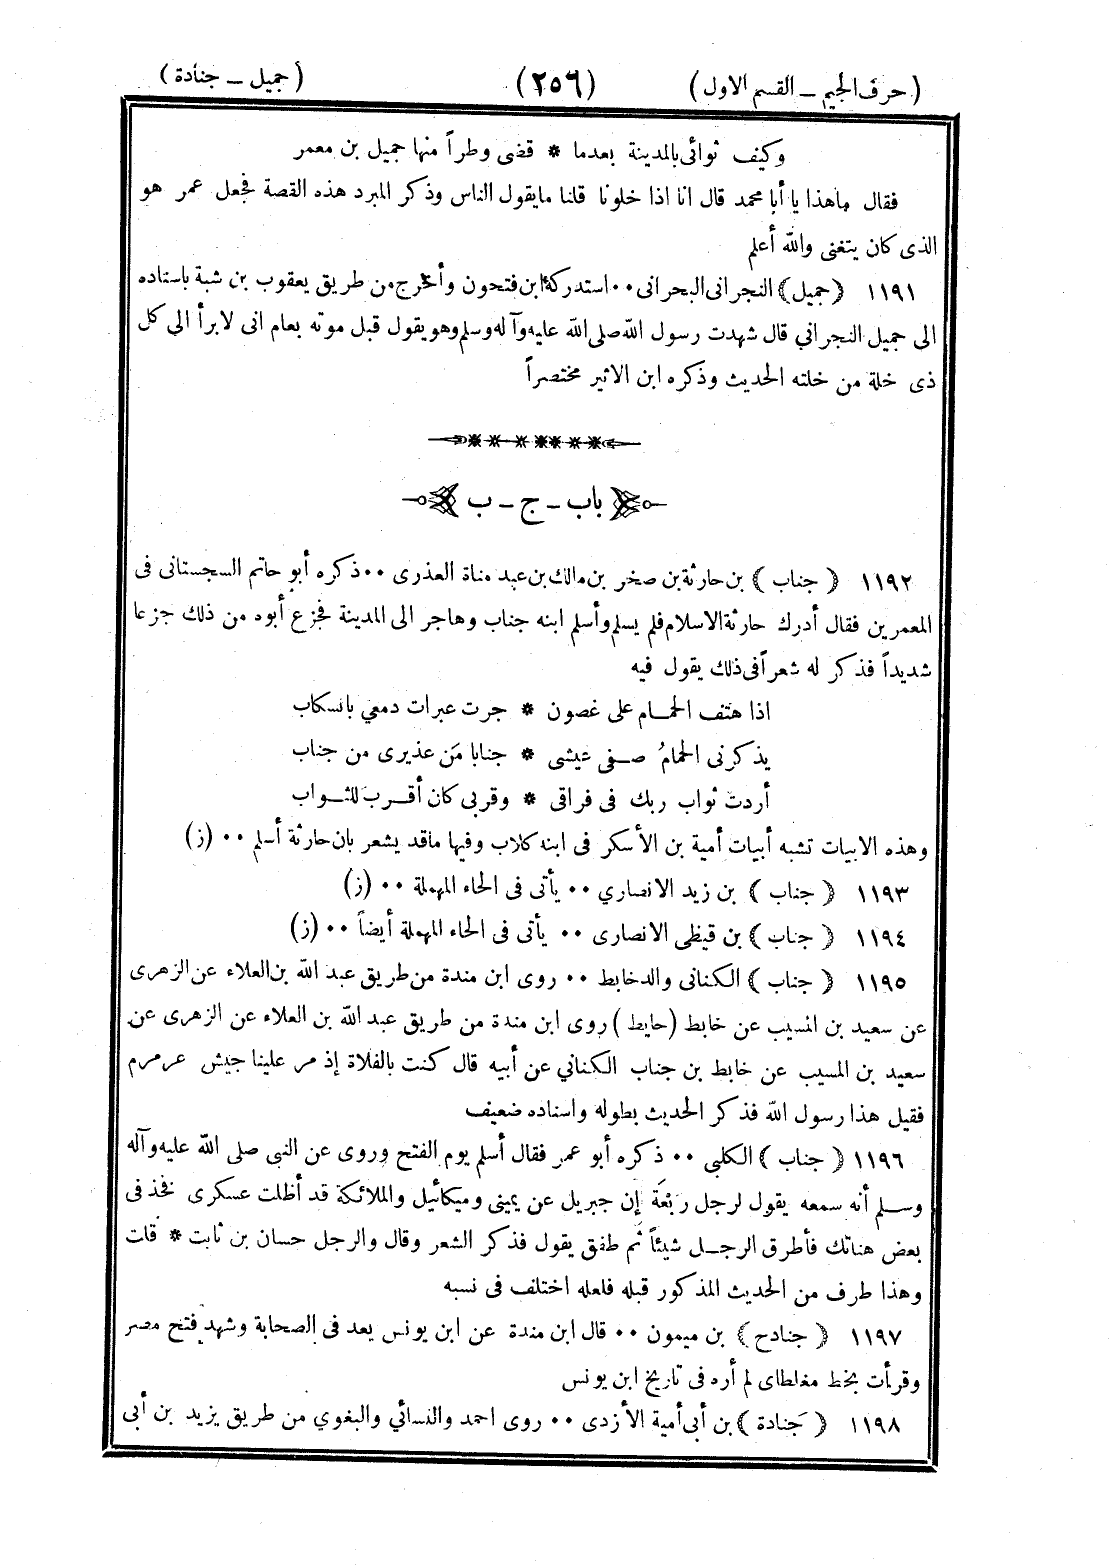 ( حرف الجيم ــ القسم الاول ) (٢٥٦) ( جميل ــ جنادة )
وكيف ثوائى بالمدينة بعدما * قضى وطراً منها جميل بن معمر
فقال ماهذا يا أبا محمد قال انا اذا خلونا قلنا مايقول الناس وذكر المبرد هذه القصة فجعل عمر هو
الذى كان يتغنى والله أعلم
١١٩١ ﴿ جميل ﴾ النجرانى البحرانى ٠٠ استدركه ابن فتحون وأخرج من طريق يعقوب بن شبة باسناده
الى جميل النجراني قال شهدت رسول الله صلى الله عليه وآله وسلم وهو يقول قبل موته بعام انى لابرأ الى كل
ذى خلة من خلته الحديث وذكره ابن الاثير مختصراً
باب ـ ج ـ ب
١١٩٢ ﴿ جناب ﴾ بن حارثة بن صخر بن مالك بن عبد مناة العذرى ٠٠ ذكره أبو حاتم السجستانى فى
المعمرين فقال أدرك حارثة الاسلام فلم يسلم وأسلم ابنه جناب وهاجر الى المدينة فجزع أبوه من ذلك جزعا
شديداً فذكر له شعراً فى ذلك يقول فيه
اذا هتف الحمام على غصون * جرت عبرات دمعي بانسكاب
يذكرنى الحمامُ صفى عيشى * جنابا مَن عذيرى من جناب
أردت ثواب ربك فى فراقى * وقربى كان أقرب للثواب
وهذه الابيات تشبه أبيات أمية بن الأسكر فى ابنه كلاب وفيها ماقد يشعر بان حارثة أسلم ٠٠ (ز)
١١٩٣ ﴿ جناب ﴾ بن زيد الانصاري ٠٠ يأتى فى الحاء المهملة ٠٠ (ز)
١١٩٤ ﴿ جناب ﴾ بن قيظى الانصارى ٠٠ يأتى فى الحاء المهملة أيضاً ٠٠ (ز)
١١٩٥ ﴿ جناب ﴾ الكنانى والد خابط ٠٠ روى ابن مندة من طريق عبد الله بن العلاء عن الزهرى
عن سعيد بن المسيب عن خابط (حايط) روى ابن مندة من طريق عبد الله بن العلاء عن الزهرى عن
سعيد بن المسيب عن خابط بن جناب الكناني عن أبيه قال كنت بالفلاة إذ مر علينا جيش عرمرم
فقيل هذا رسول الله فذكر الحديث بطوله واسناده ضعيف
١١٩٦ ﴿ جناب ﴾ الكلبي ٠٠ ذكره أبو عمر فقال أسلم يوم الفتح وروى عن النبى صلى الله عليه وآله
وسلم أنه سمعه يقول لرجل ربْعَة إن جبريل عن يمينى وميكائيل والملائكة قد أظلت عسكرى فخذ فى
بعض هناتك فأطرق الرجل شيئاً ثم طفق يقول فذكر الشعر وقال والرجل حسان بن ثابت * قلت
وهذا طرف من الحديث المذكور قبله فلعله اختلف فى نسبه
١١٩٧ ﴿ جنادح ﴾ بن ميمون ٠٠ قال ابن مندة عن ابن يونس يعد فى الصحابة وشهد فتح مصر
وقرأت بخط مغلطاى لم أره فى تاريخ ابن يونس
١١٩٨ ﴿ جَنادة ﴾ بن أبى أمية الأزدى ٠٠ روى احمد والنسائي والبغوي من طريق يزيد بن أبى